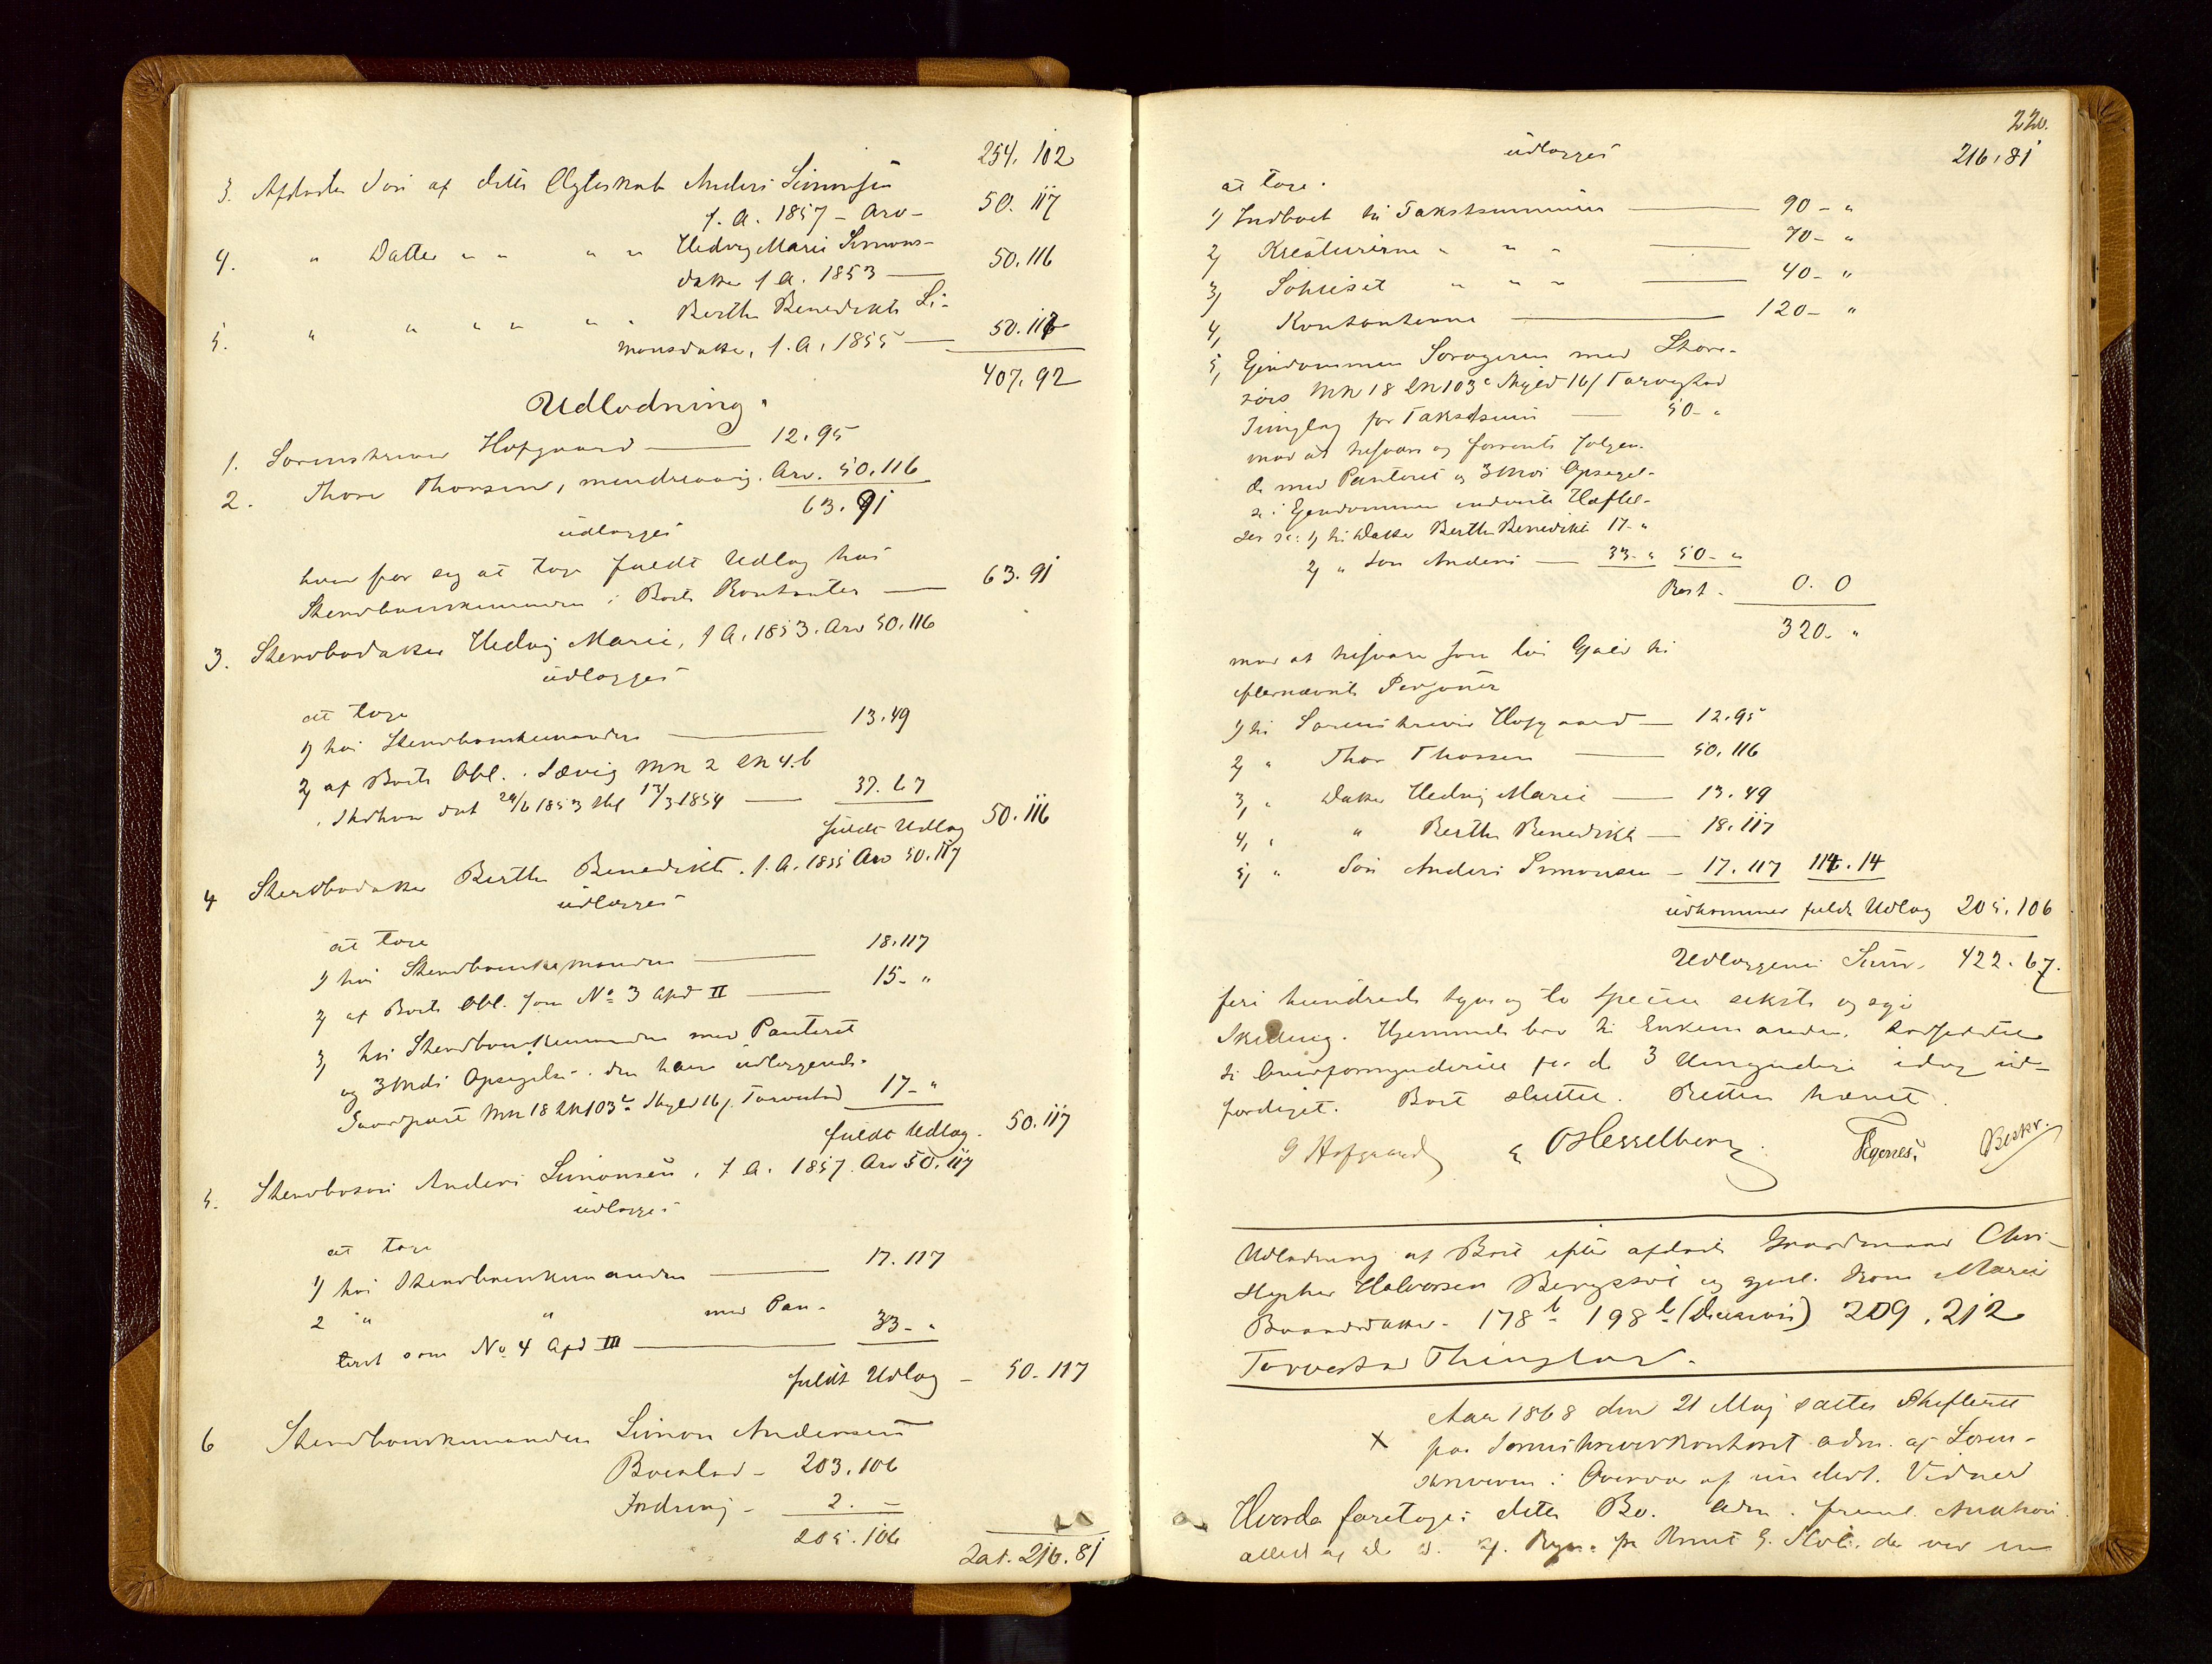 254. 102
3. Afdødes Søn af dette Ægteskab Anders Simonsen
f. A. 1857 – Arv – 50. 117
4. " Datter " " " " Hedvig Marie Simons-
datter f A. 1853 — 50. 116
5. " " " " " " Berthe Benedikte Si-
monsdatter, f. A. 1855 — 50. 117
407. 92
Udlodning.
1. Sorenskriver Hofgaard — 12. 95
2. Thore Thorsen, myndig. Arv. 50. 116
63. 91
udlægges
hver for sig at tage fuldt Udlag hos
Stervboenkemanden i Boets Kontanter — 63. 91
3. Stervbodatter Hedvig Marie, f A. 1853. Arv 50. 116
udlægges
at tage
1) hos Stervboenkemanden — 13. 49
2) af Boets Obl. i Sævig MN 2 LN 4. b
Skudenes dat 24/6 1853 thl 13/3 1854 — 37. 67
fuldt Udlag 50. 116
4 Stervbodatter Berthe Benedikte. f. A. 1855 Arv 50. 117
udlægges
at tage
1) hos Stervboenkemanden — 18. 117
2) af Boets Obl. som No 3 Opd II — 15 - "
3) hos Stervboenkemanden med Panteret
og 3 Mdrs Opsigelse i den ham udlæggende
Gaardpart MN 18 LN 103c Skyld 16 f. Torvestad 17 - "
fuldt Udlag. 50. 117
5. Stervbosøn Anders Simonsen, f A. 1857. Arv 50. 117
udlægges
at tage
1) hos Stervboenkemanden — 17. 117
2 " " med Pan-
teret som No 4 Opd III — 33 - "
fuldt Udlag – 50. 117
6 Stervboenkemanden Simon Andersen
Boeslod – 203. 106
Fordring – 2. –
205. 106
Lat. 216. 81
220.
udlægges 216. 81
at tage.
1) Indboet til Takstsummen — 90 - "
2) Kreaturerne " " " — 70 - "
3) Søhuset " " " — 40 - "
4) Kontanterne — 120 - "
5) Ejendommen Sørageren med Store-
MN 18 LN 103c Skyld 16 f Torvestad
Tinglag for Takstsum — 50 - "
mod at tilsvare og forrente følgen-
de med Panteret og 3 Mdrs Opsigel-
se i Ejendommen indvente Heftel-
ser sc: 1) til Datter Berthe Benedikte 17 - "
2) " Søn Anders — 33 - " 50 - "
Rest - 0. 0
320 - "
mod at tilsvare som løs Gjæld til
efternævnte Personer
1) til Sorenskriver Hofgaard — 12. 95
2) " Thor Thorsen — 50. 116
3) " Datter Hedvig Marie — 13. 49
4) " " Berthe Benedikte — 18. 117
5) " Søn Anders Simonsen – 17. 117 114. 14
udkommer fuldt Udlag 205. 106
Udlæggenes Sum. 422. 67.
fire hundrede tyve og to Specier seksti og syv
Skilling. Hjemmelsbrev til Enkemanden, Forseglede
til Overformynderiet for de 3 Umyndige idag ud-
færdiget. Boet sluttet. Retten hævet.
G Hofgaard OHesselberg. Beskr.
Udlodning af Boet efter afdøde Gaardmand Chri-
stopher Halvorsen Bergesøe og gjenl. Kone Marie
Baardsdatter. 178 b 198 b (Decision) 209. 212
Torvestad Thinglav.
Aar 1868 den 21 Maj sattes Skifteret
paa Sorenskriverkontoret adm. af Soren-
skriveren i Overvær af undert. Vidner
Hvorda foretoges dette Bo. Adm. freml. Auktions